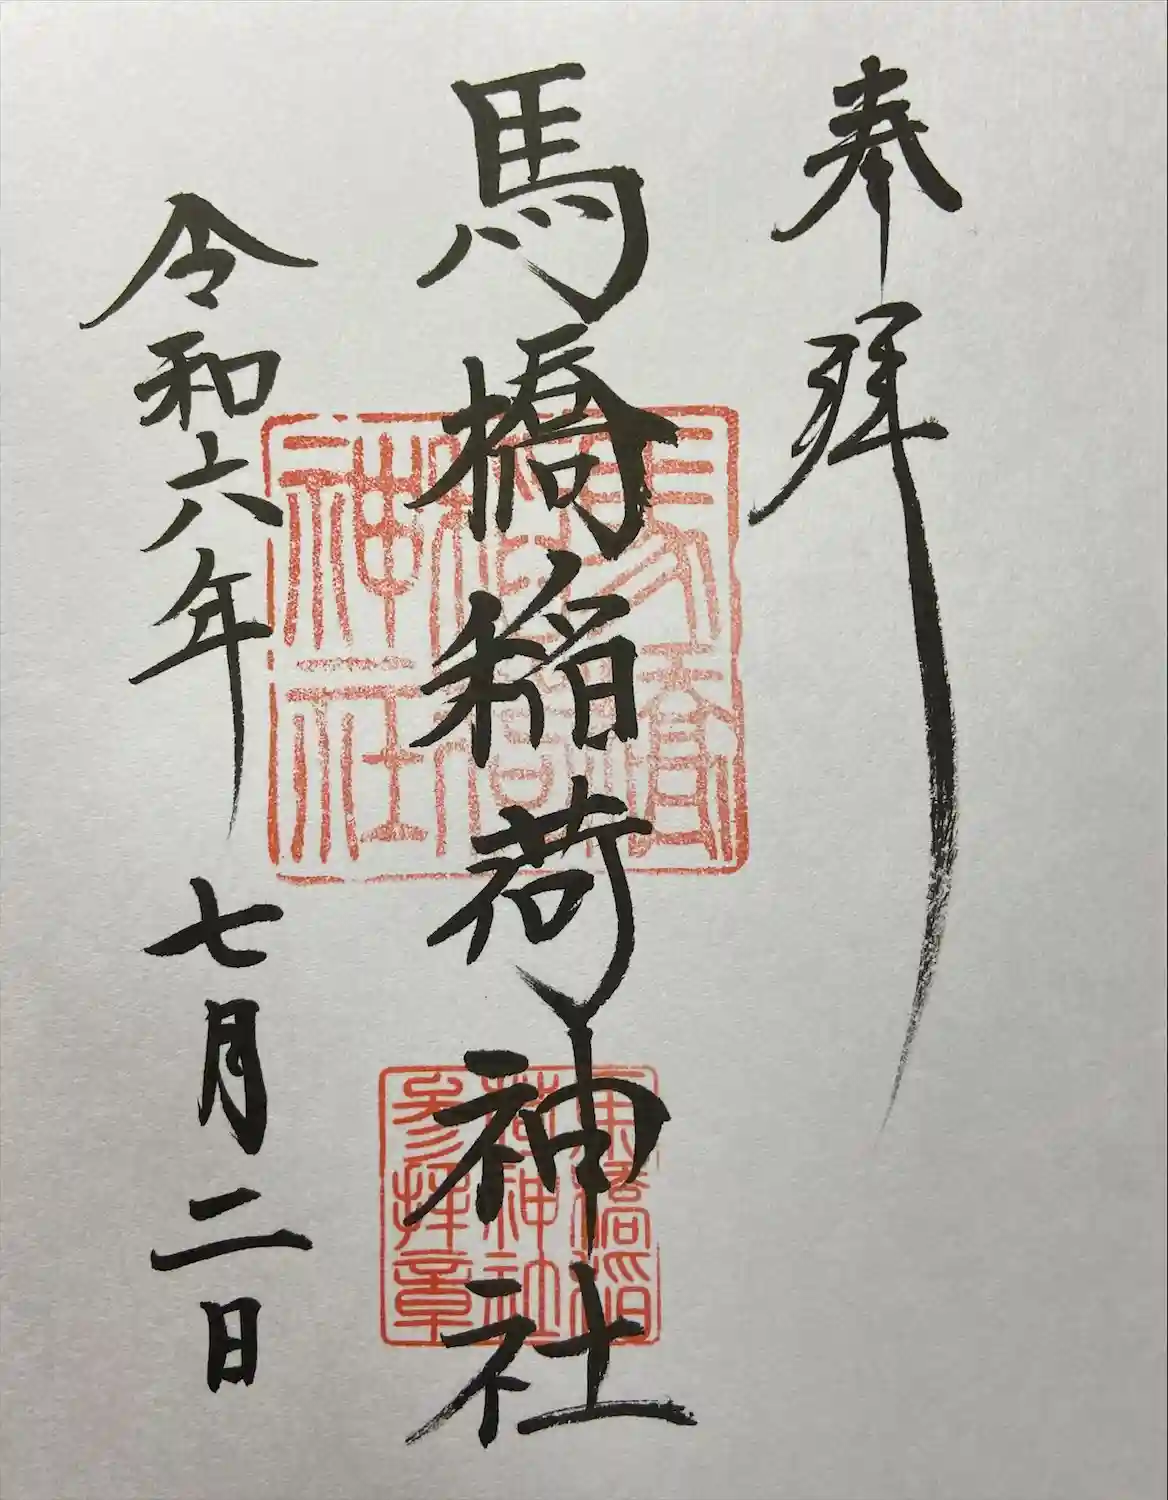 奉拝
馬橋稲荷神社
令和六年七月二日
馬橋稲荷神社
馬橋稲荷神社参拝章